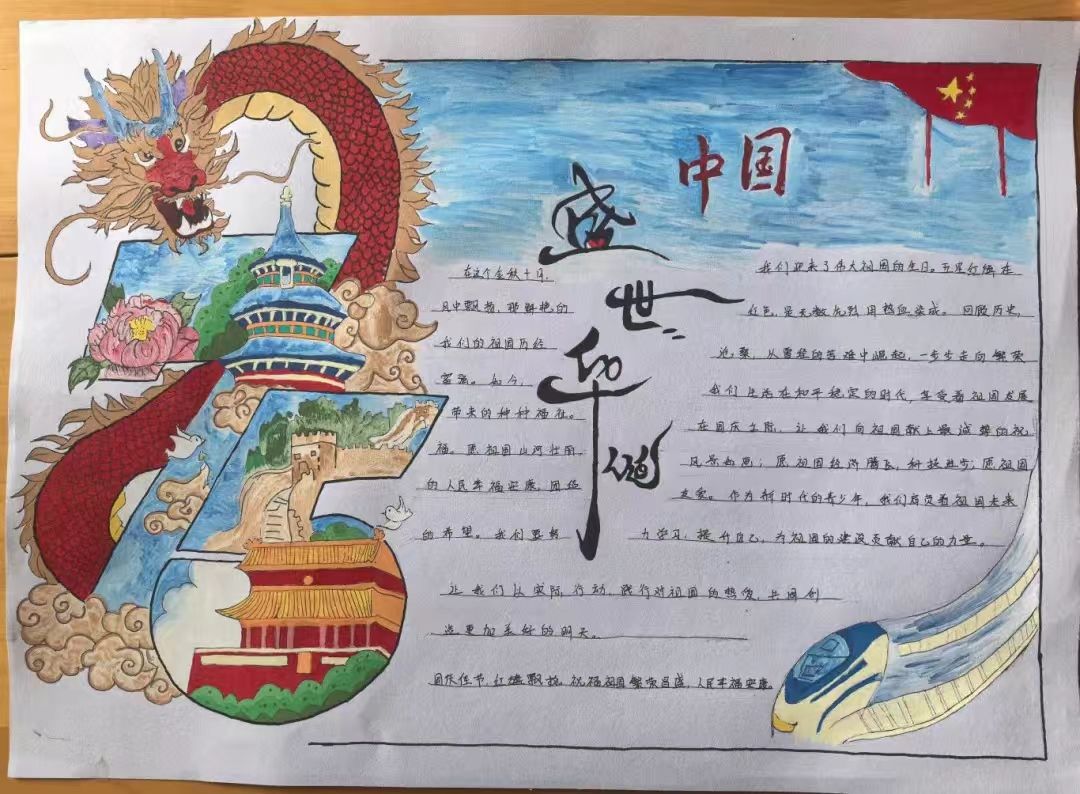 中国
盛世华诞
在这个金秋十月,我们迎来了伟大祖国的生日。五星红旗在
风中飘扬,那鲜艳的红色,是无数先烈用热血染成。回顾历史,
我们的祖国历经沧桑,从曾经的苦难中崛起,一步步走向繁荣
富强。如今,我们生活在和平稳定的时代,享受着祖国发展
带来的种种福祉。在国庆之际,让我们向祖国献上最诚挚的祝
福。愿祖国山河壮丽,风景如画;愿祖国经济腾飞,科技进步;愿祖国
的人民幸福安康,团结友爱。作为新时代的青少年,我们肩负着祖国未来
的希望。我们要努力学习,提升自己,为祖国的建设贡献自己的力量。
让我们以实际行动,践行对祖国的热爱,共同创
造更加美好的明天。
国庆佳节,红旗飘扬,祝福祖国繁荣昌盛,人民幸福安康